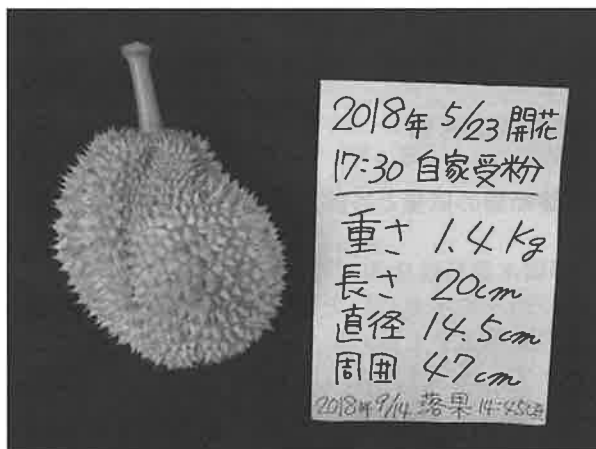 2018年 5/23 開花
17:30 自家受粉
重さ 1.4 Kg
長さ 20cm
直径 14.5cm
周囲 47cm
2018年9/14 落果 14:45頃